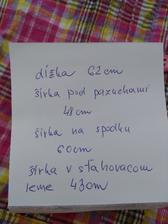 dĺžka 62cm
šírka pod pazuchami
48cm
šírka na spodku
60cm
šírka v sťahovacom
leme 43cm